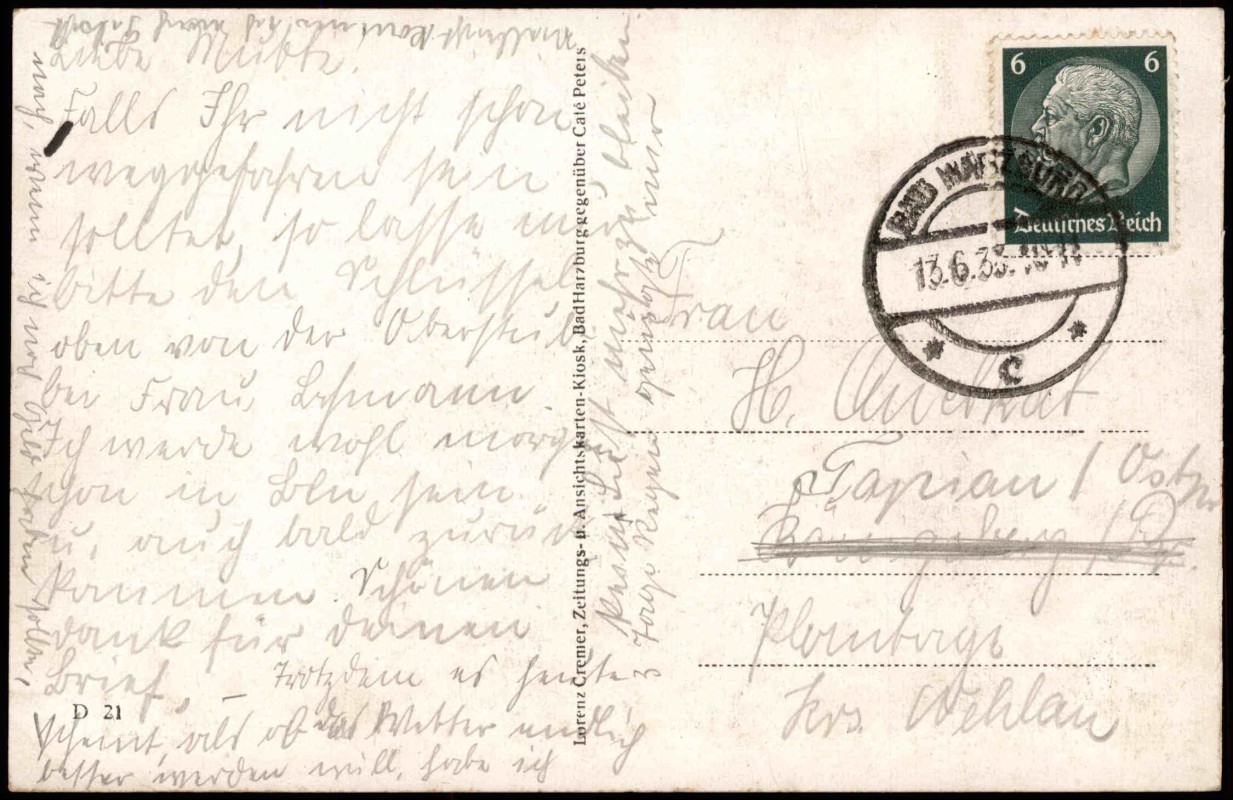 Liebe Mutti.
Falls Ihr nicht schon
weggefahren sein
solltet, so lasse mir
bitte den Schlüssel
oben von der Oberstube
bei Frau Lehmann.
Ich werde wohl morgen
schon in Bln. sein
u. auch bald zurück
kommen. Schönen
Dank für deinen
Brief. – Trotzdem es heute
scheint, als ob das Wetter endlich
besser werden will, habe ich
keine Lust mehr zu bleiben
3 Tage Regen genügte mir
nach, wenn ich noch Geld haben sollte,
D 21
Lorenz Cremer, Zeitungs- u. Ansichtskarten-Kiosk, Bad Harzburg gegenüber Café Peters
6 6
Deutsches Reich
BAD HARZBURG
13.6.38
c
Frau
H.
Tapiau / Ostpr
Königsberg / Pr.
Plantage
Krs. Wehlau